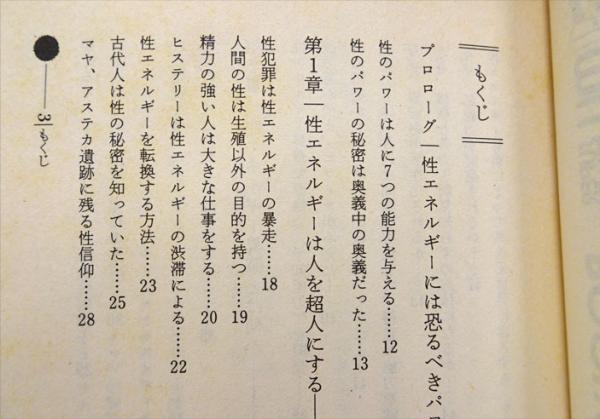 もくじ
プロローグ―性エネルギーには恐るべきパ
性のパワーは人に7つの能力を与える……12
性のパワーの秘密は奥義中の奥義だった……13
第1章―性エネルギーは人を超人にする―
性犯罪は性エネルギーの暴走……18
人間の性は生殖以外の目的を持つ……19
精力の強い人は大きな仕事をする……20
ヒステリーは性エネルギーの渋滞による……22
性エネルギーを転換する方法……23
古代人は性の秘密を知っていた……25
マヤ、アステカ遺跡に残る性信仰……28
3|もくじ